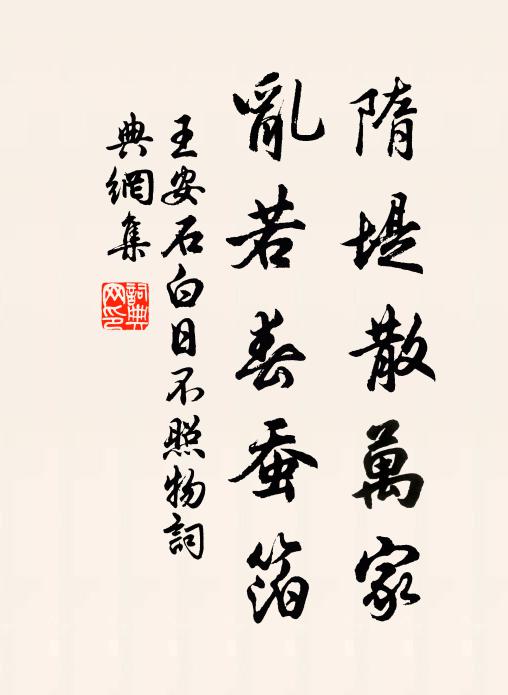 隋堤散萬家
亂若春蚕箔
王安石白日不照物詞
典網集
詞典网印